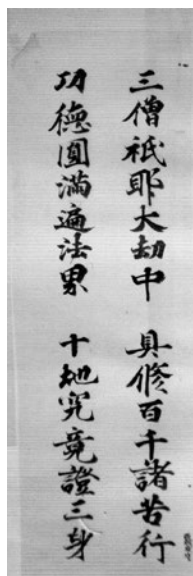 三僧祇耶大劫中 具修百千諸苦行
功德圓滿遍法界 十地究竟證三身